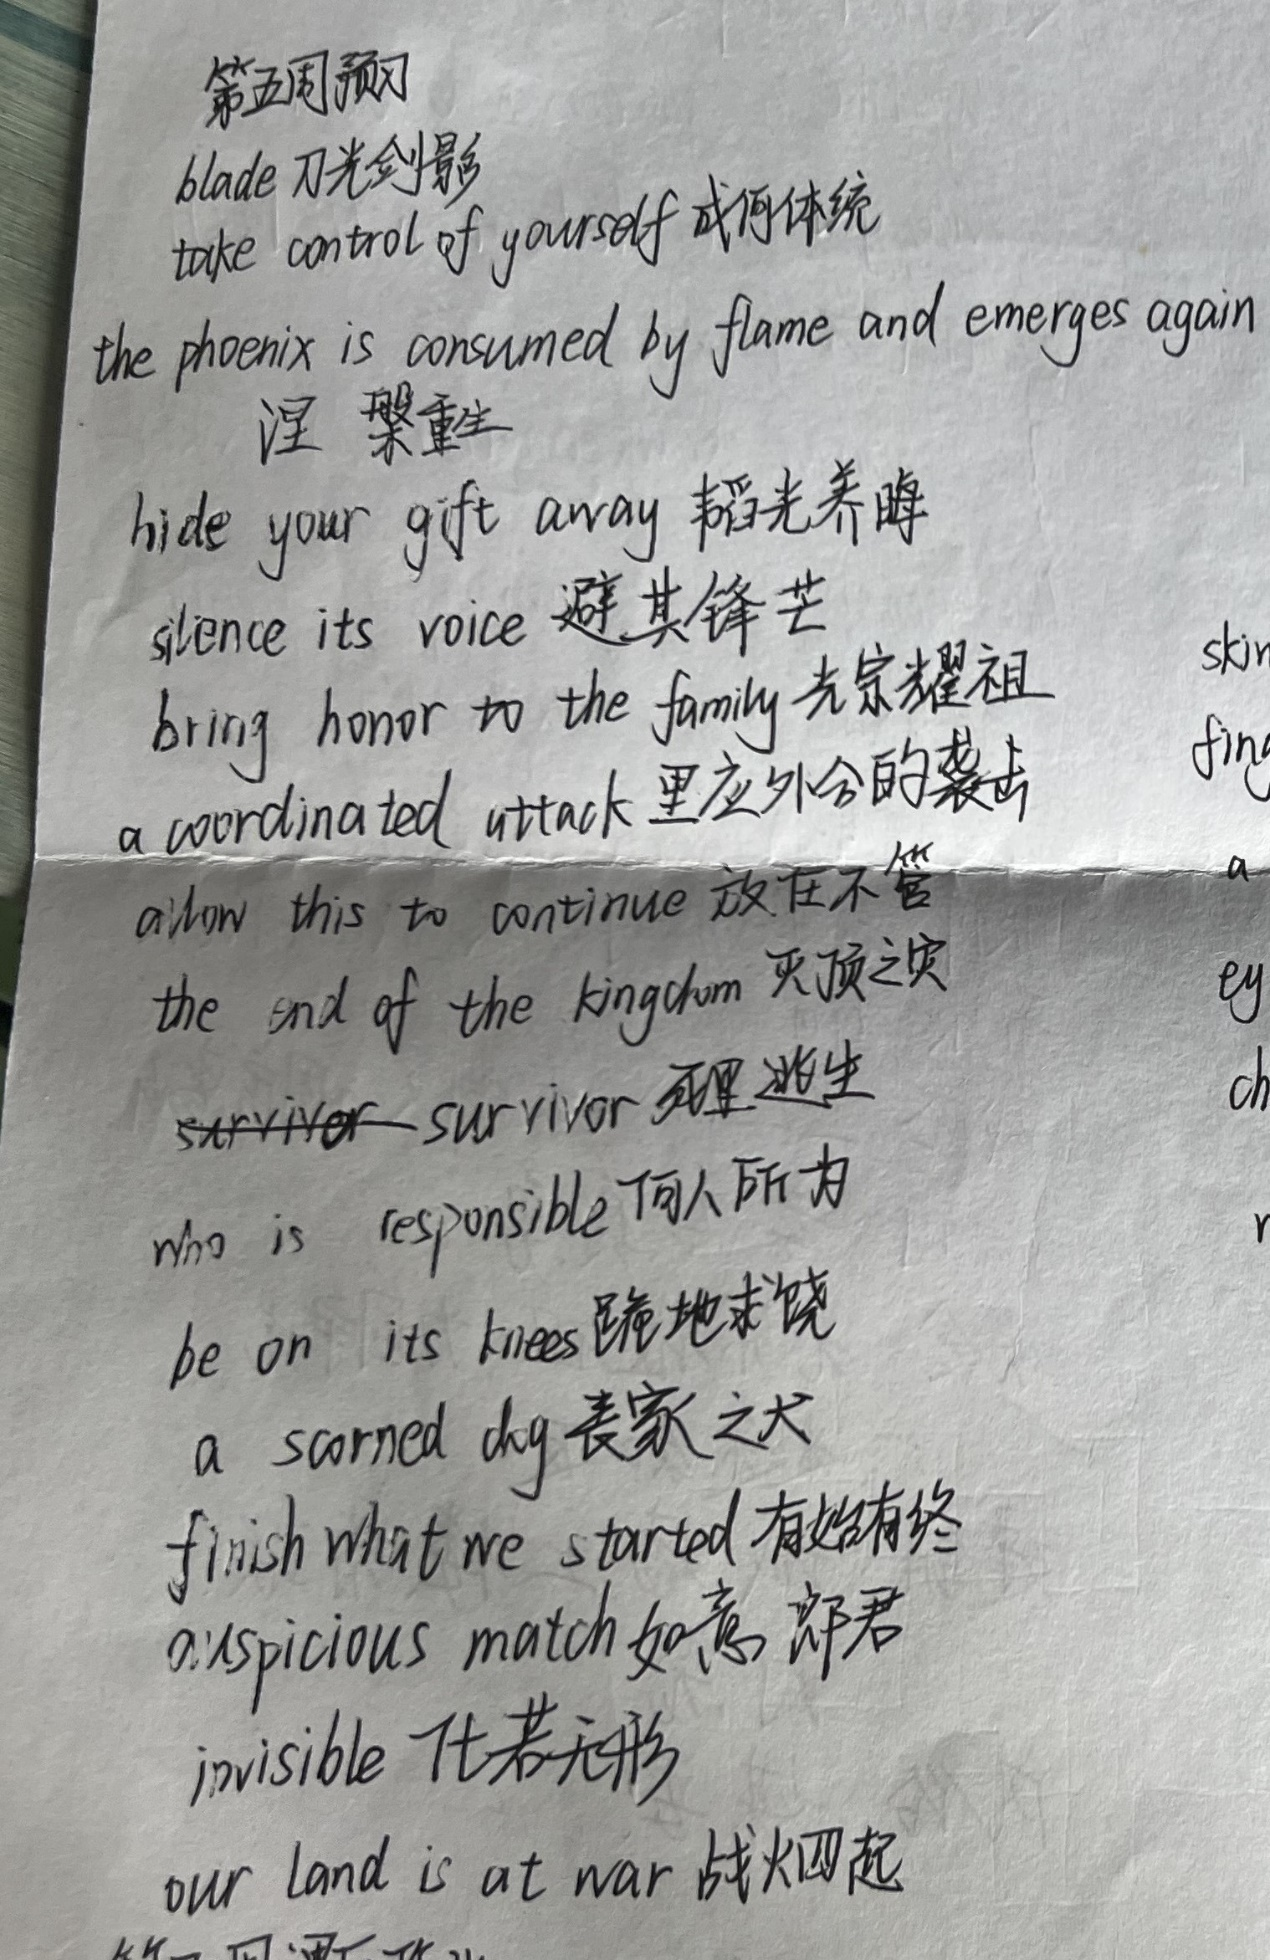 第五周预习
blade 刀光剑影
take control of yourself 成何体统
the phoenix is consumed by flame and emerges again
涅槃重生
hide your gift away 韬光养晦
silence its voice 避其锋芒
bring honor to the family 光宗耀祖
a coordinated attack 里应外合的袭击
allow this to continue 放在不管
the end of the kingdom 灭顶之灾
survivor survivor 死里逃生
who is responsible 何人所为
be on its knees 跪地求饶
a scorned dog 丧家之犬
finish what we started 有始有终
auspicious match 如意郎君
invisible 化若无形
our land is at war 战火四起
skin
fing
a
ey
ch